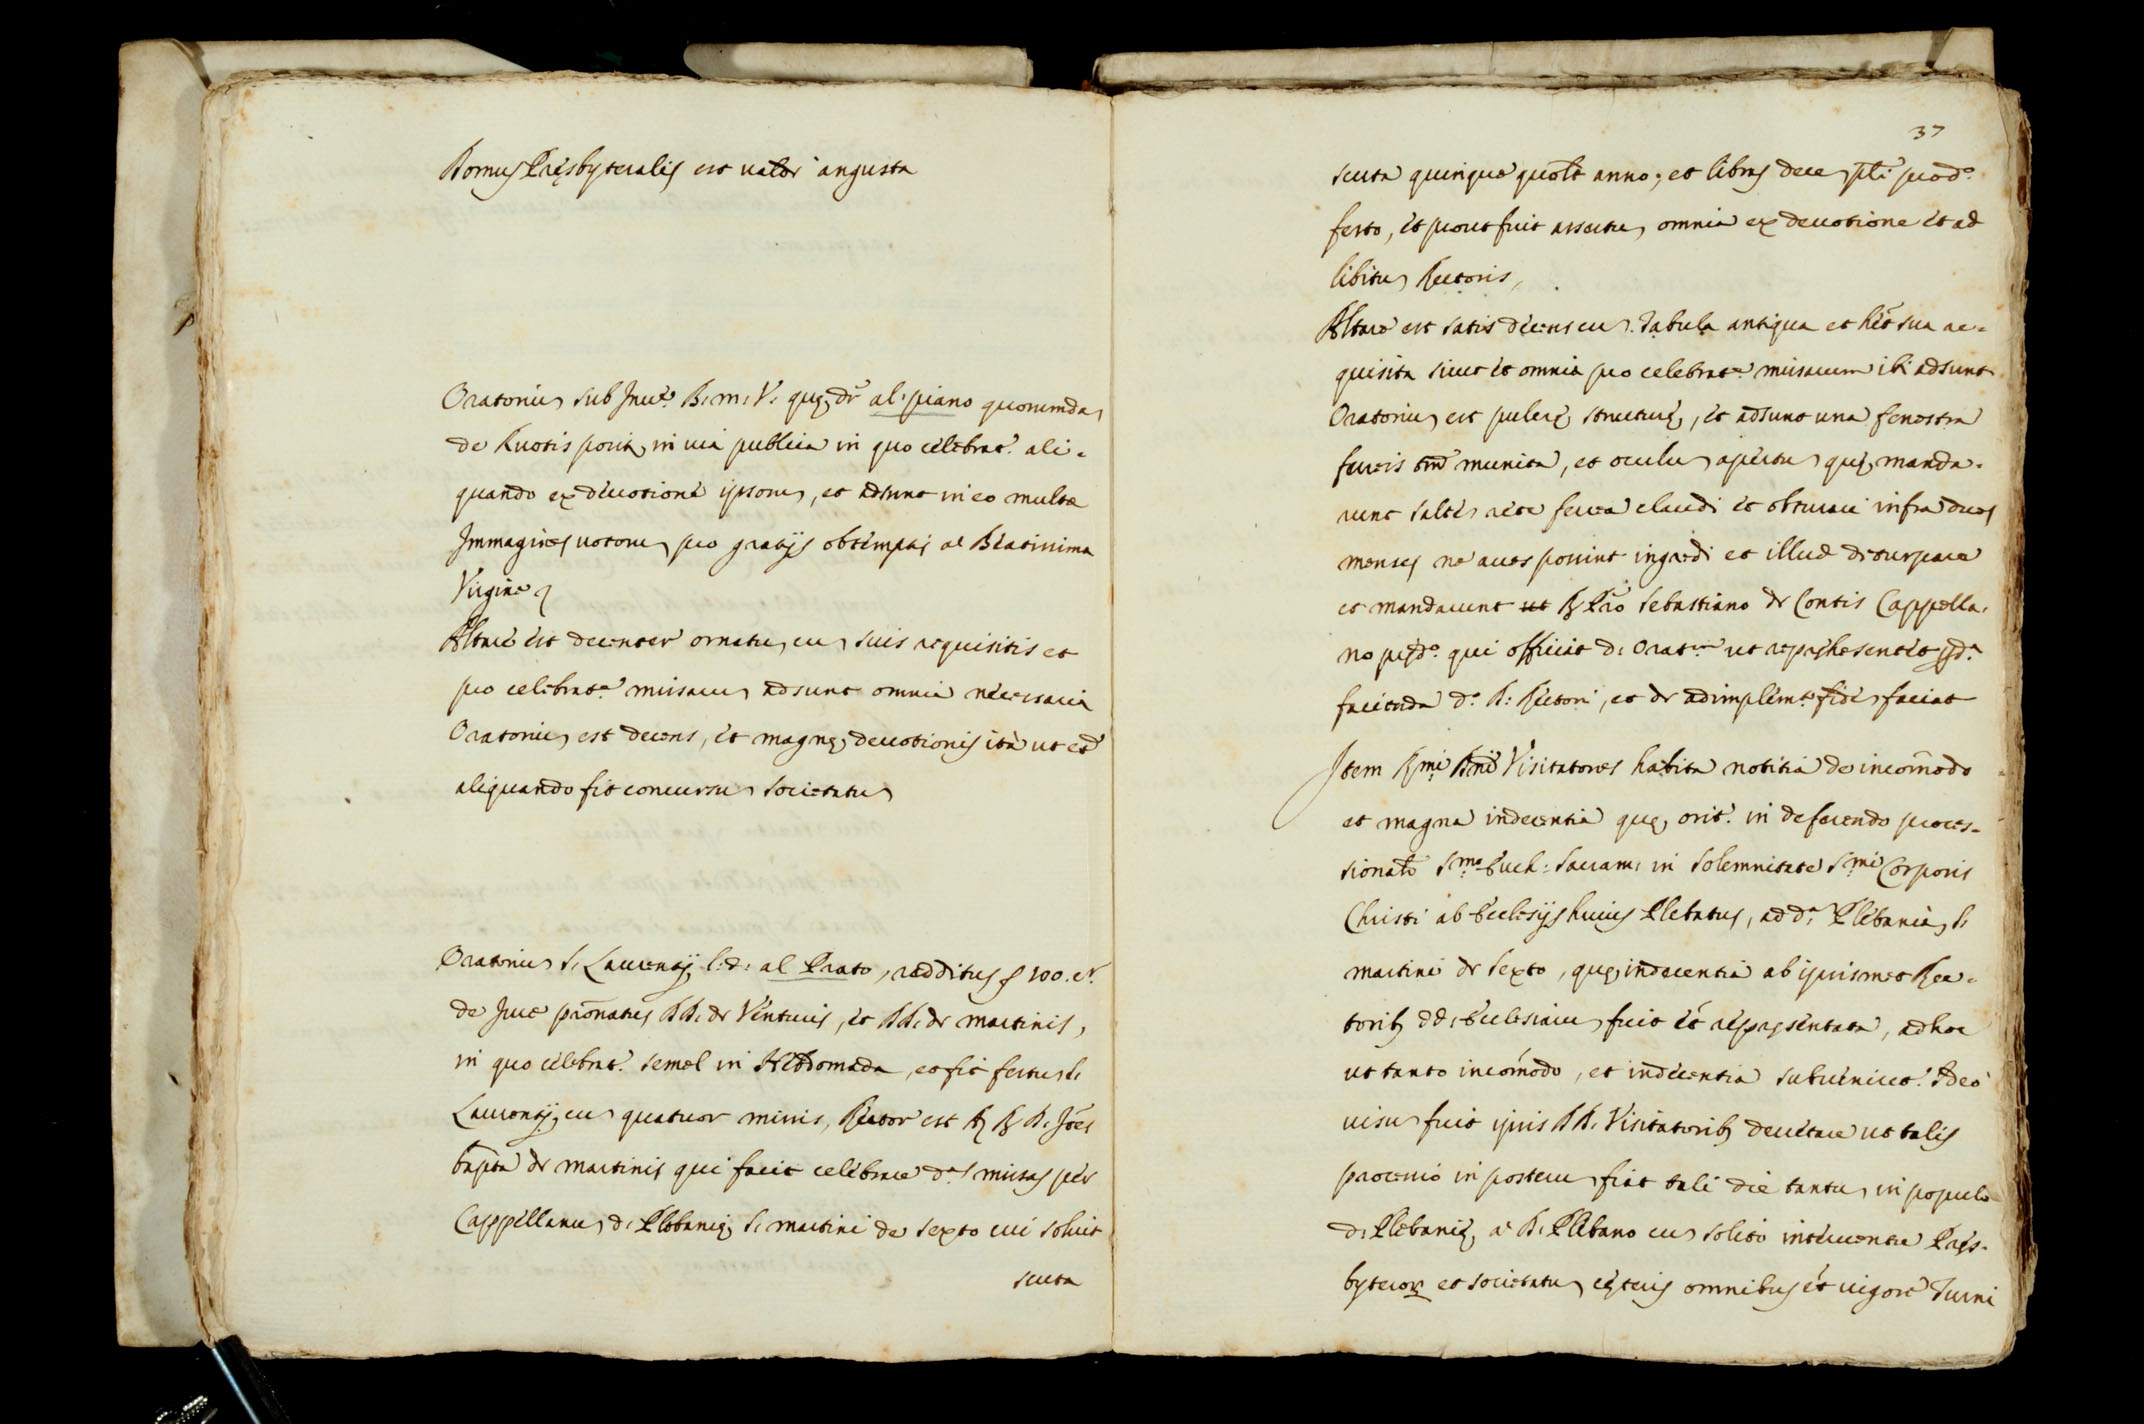 Domus Pręsbyteralis est valde angusta
Oratoriu, sub Inv.e B: m: V: quę dr al piano quorumda,
de Ruotis posit, in via publica in quo celebrat.r ali-
quando ex devotione ipsoru, et adsunt in eo multæ
Immagines votoru, pro gratijs obtemptis a Beatissima
Virgine
Altare est decenter ornatu, cu, suis requisitis et
pro celebrat.e missaru, adsunt omnia necessaria
Oratoriu, est decens, et magnę devotionis ità ut et
aliquando fit concursu, societatu,
Oratoriu, S. Laurentij l: d: al Prato, redditus f 100. cr
de Jure pronatus DD. de Venturis, et DD. de martinis,
in quo celebrat.r semel in Hebdomada, et fit festu, S.
Laurentij, cu, quatuor missis, Rector est R D. Joes
bapta de martinis qui facit celebrare d.as missas per
Cappellanu, d. Plebanię S. martini de Sexto cui solvit
scuta
37
scuta quinque quolt anno, et libras dece, pti pro d.o
festo, et prout fuit assertu, omnia ex devotione et ad
libitu, Rectoris,
Altare est satis decens cu, Tabula antiqua et het sua re-
quisita sicut et omnia pro celebrat.e missarum ibi adsunt
Oratoriu, est pulcrę structurę, et adsunt una fenestra
ferreis tm munita, et oculu, apertu, quę manda-
runt salte, rete ferrea claudi et obturari infra duos
menses ne aves possint ingredi et illud deturpare
et mandarunt R Pro Sebastiano de Contis Cappella-
no pręd.o qui officiat d. Orat.um ut repręhesentet pd.a
facienda d.o D: Rectori, et de adimplem.to fide, faciat
Item Rmi Dni Visitatores habita notitia de incomodo
et magna indecentia quę orit.r in deferendo proces-
sionalr S.mo Euch: Sacram: in solemnitate S.mi Corporis
Christi ab Ecclesijs huius Plebatus, ad d.a Plebania, S.
martini de Sexto, quę indecentia ab ipsismet Rec-
torib, dd. Ecclesiaru, fuit et repręsentata, ad hoc
ut tanto incomodo, et indecentia subveniret.r Adeò
visu, fuit ipsis DD. Visitatorib, decretare ut talis
processio in posteru, fiat tali die tantu, in populo
d. Plebanię, a D. Plebano cu, solito interventu Pręs-
byteror et societatu, cęteris omnibus et vigore Turni